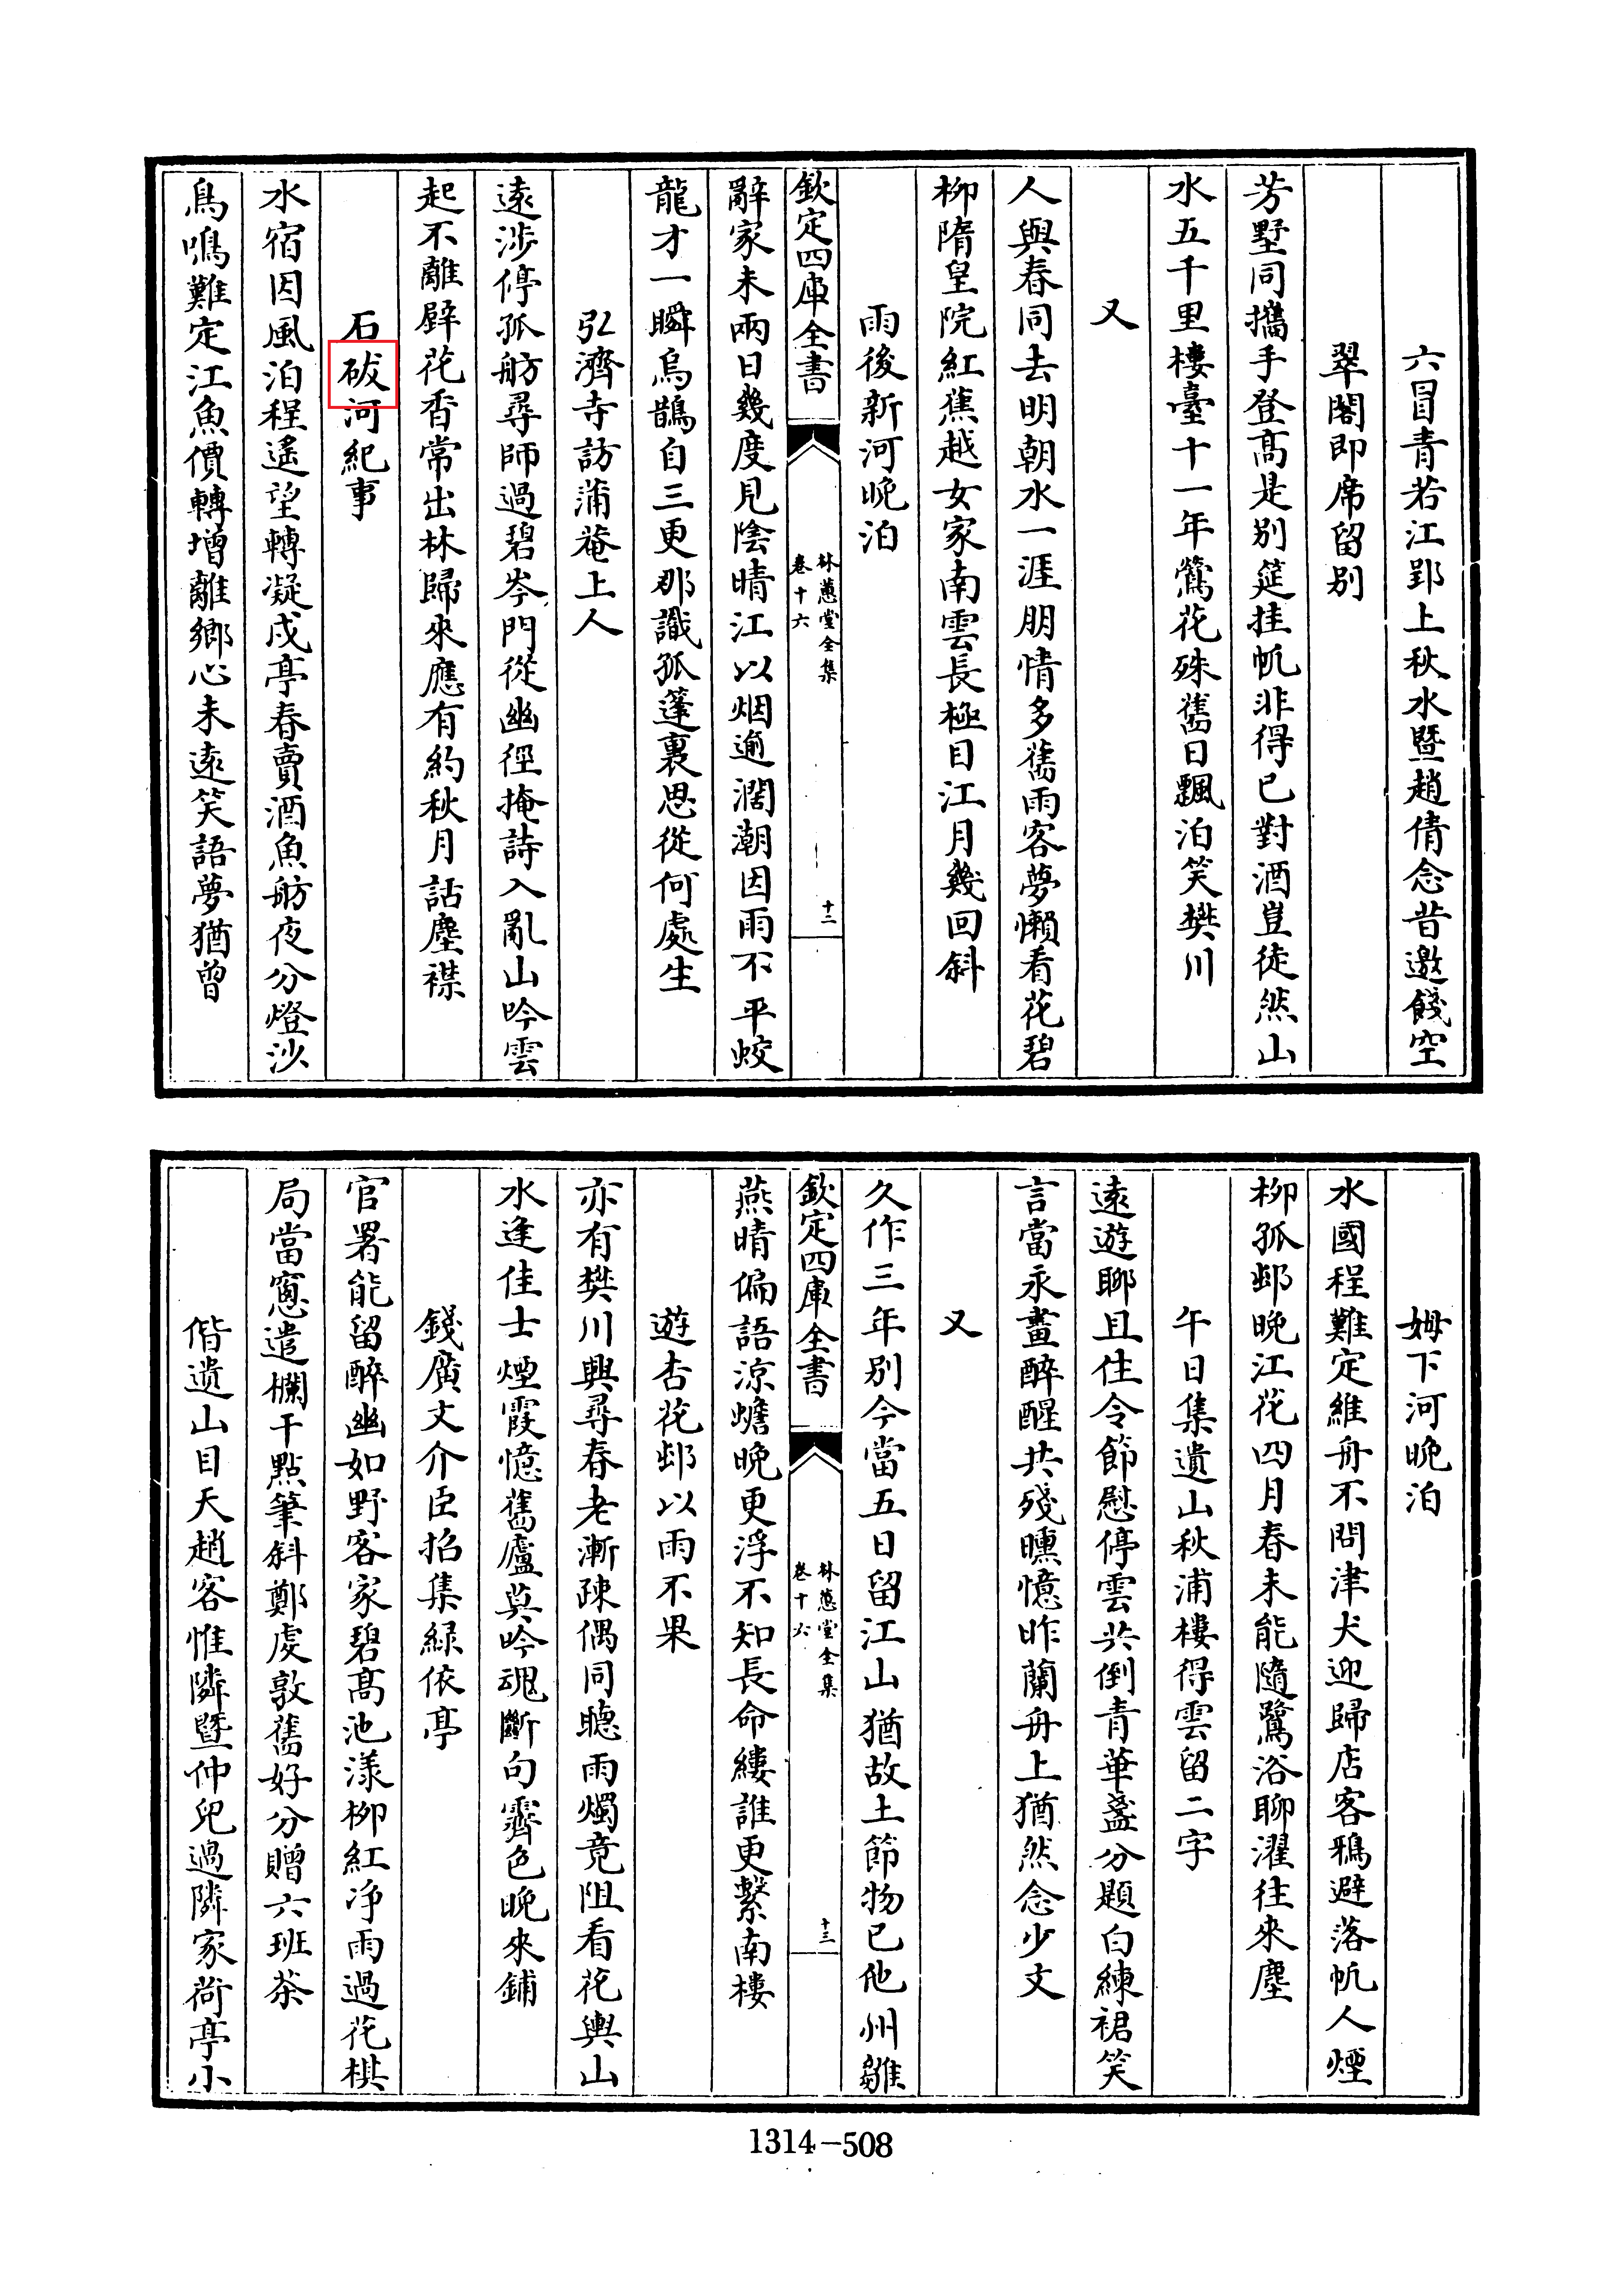 六冒青若江郢上秋水暨趙倩念昔邀餞空
翠閣即席留别
芳墅同攜手登髙是别筵挂帆非得已對酒豈徒然山
水五千里樓臺十一年鶯花殊舊日飄泊笑樊川
又
人與春同去明朝水一涯朋情多舊雨客夢懶看花碧
柳隋皇院紅蕉越女家南雲長極目江月幾回斜
雨後新河晚泊
欽定四庫全書
林蕙堂全集
卷十六
十二
辭家未兩日幾度見陰晴江以烟逾濶潮因雨不平蛟
龍才一瞬烏鵲自三更那識孤篷裏思從何處生
弘濟寺訪蒲菴上人
遠涉停孤舫尋師過碧岑門從幽徑掩詩入亂山吟雲
起不離壁花香常出林歸來應有約秋月話塵襟
石砅河紀事
水宿因風泊程遙望轉凝戍亭春賣酒魚舫夜分燈沙
鳥鳴難定江魚價轉增離鄉心未遠笑語夢猶曾
姆下河晚泊
水國程難定維舟不問津犬迎歸店客鴉避落帆人煙
柳孤邨晚江花四月春未能隨鷺浴聊濯往來塵
午日集遺山秋浦樓得雲留二字
遠遊聊且住令節慰停雲共倒青華盞分題白練裙笑
言當永晝醉醒共殘曛憶昨蘭舟上猶然念少文
又
久作三年别今當五日留江山猶故土節物已他州雛
欽定四庫全書
林蕙堂全集
卷十六
十三
燕晴偏語涼蟾晚更浮不知長命縷誰更繫南樓
遊杏花邨以雨不果
亦有樊川興尋春老漸疎偶同聽雨燭竟阻看花輿山
水逢佳士煙霞憶舊廬莫吟魂斷句霽色晚來鋪
錢廣文介臣招集緑依亭
官署能留醉幽如野客家碧髙池漾柳紅净雨過花棋
局當窻遣欄干點筆斜鄭虔敦舊好分贈六班茶
偕遺山目天趙客惟隣暨仲兒過隣家荷亭小
1314—508